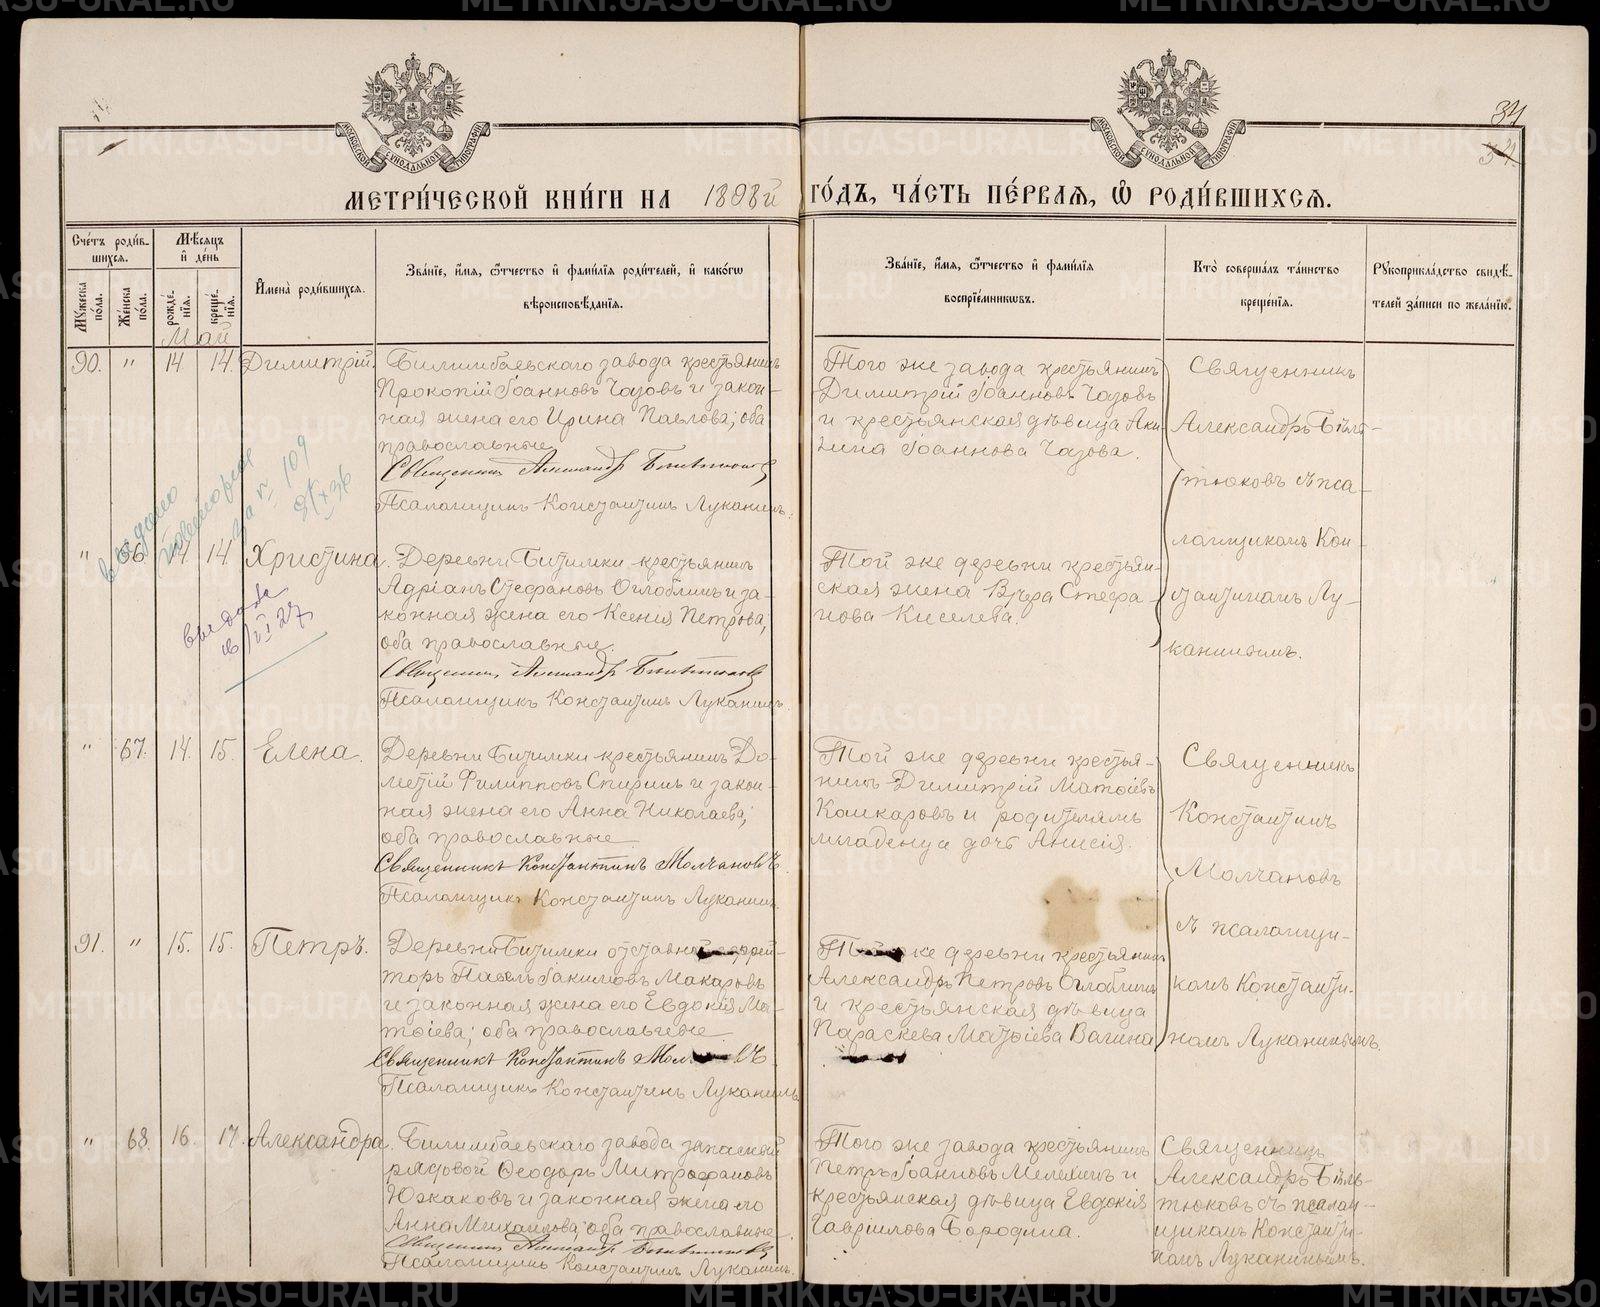 34
34.
МОСКОВСКОЙ СѴНОДАЛЬНОЙ ТИПОГРАФІИ
МОСКОВСКОЙ СѴНОДАЛЬНОЙ ТИПОГРАФІИ
МЕТРИ́ЧЕСКОЙ КНИ́ГИ НА 1898й ГО́ДЪ, ЧА́СТЬ ПЕ́РВАЯ, Ѡ҆ РОДИ́ВШИХСЯ.
Сче́тъ роди́в-
шихся.
Мѣ́сяцъ
и҆ де́нь
Мꙋ́жеска по́ла.
Же́нска по́ла.
рожде́-
нїя.
креще́-
нїя.
И҆мена̀ роди́вшихся.
Зва́нїе, и҆́мя, ѻ҆́тчество и҆ фами́лїя роди́телей, и҆ како́гѡ
вѣроисповѣ́данїя.
Зва́нїе, и҆́мя, ѻ҆́тчество и҆ фами́лїя
воспрїе́мникѡвъ.
Кто̀ соверша́лъ та́инство
креще́нїя.
Рꙋкоприкла́дство свидѣ́-
телей за́писи по жела́нїю.
Май
90. " 14. 14. Димитрій.
Билимбаевскаго завода крестьянинъ
Прокопій Іоанновъ Чазовъ и закон-
ная жена его Ирина Павлова; оба
православные
Священникъ Александръ Бѣльтюковъ
Псаломщикъ Константинъ Луканинъ.
Того же завода крестьянинъ
Димитрій Іоанновъ Чазовъ
и крестьянская дѣвица Аки-
лина Іоаннова Чазова.
Священникъ
Александръ Бѣль-
тюковъ съ пса-
ломщикомъ Кон-
стантиномъ Лу-
канинымъ.
выдано
повторное
за № 109
31/X 36
" 66 14 14 Христина.
Деревни Битимки крестьянинъ
Адріанъ Стефановъ Оглоблинъ и за-
конная жена его Ксенія Петрова;
оба православные.
Священникъ Александръ Бѣльтюковъ
Псаломщикъ Константинъ Луканинъ.
Той же деревни крестьян-
ская жена Вѣра Стефа-
нова Киселева.
выдана
16/VI 27
" 67. 14. 15. Елена.
Деревни Битимки крестьянинъ До-
метій Филипповъ Спиринъ и закон-
ная жена его Анна Николаева;
оба православные
Священникъ Константинъ Молчановъ.
Псаломщикъ Константинъ Луканинъ.
Той же деревни крестья-
нинъ Димитрій Матѳіевъ
Кошкаровъ и родителямъ
младенца дочь Анисія.
Священникъ
Константинъ
Молчановъ
съ псаломщи-
комъ Константи-
номъ Луканинымъ.
91. " 15. 15. Петръ.
Деревни Битимки отставной ефрей-
торъ Павелъ Іакимовъ Макаровъ
и законная жена его Евдокія Ма-
тѳіева; оба православные
Священникъ Константинъ Молчановъ
Псаломщикъ Константинъ Луканинъ.
Той же деревни крестьянинъ
Александръ Петровъ Оглоблинъ
и крестьянская дѣвица
Параскева Матѳіева Вагина
" 68. 16. 17. Александра.
Билимбаевскаго завода запасный
рядовой Ѳеодоръ Митрофановъ
Южаковъ и законная жена его
Анна Михаилова; оба православные.
Священникъ Александръ Бѣльтюковъ
Псаломщикъ Константинъ Луканинъ.
Того же завода крестьянинъ
Петръ Іоанновъ Мелехинъ и
крестьянская дѣвица Евдокія
Гавріилова Бородина.
Священникъ
Александръ Бѣль-
тюковъ съ псалом-
щикомъ Константи-
номъ Луканинымъ.
METRIKI.GASO-URAL.RU